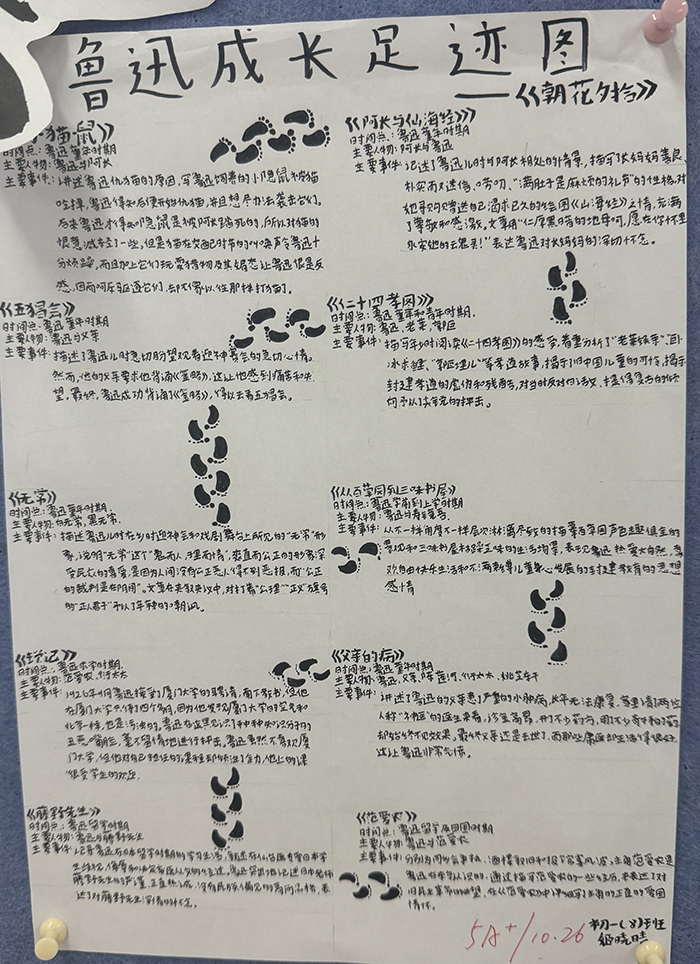 鲁迅成长足迹图
——《朝花夕拾》
猫·鼠》
时间点:鲁迅童年时期
主要人物:鲁迅与阿长
主要事件:讲述鲁迅仇猫的原因,写鲁迅饲养的小隐鼠被猫
吃掉,鲁迅得知后便开始仇猫,并且想尽办法袭击它们。
后来鲁迅才得知隐鼠是被阿长踏死的,所以对猫的
恨意减轻了一些,但是猫在交配时节的
而且加上它们玩耍猎物及其媚态让鲁迅很是反
感,因而
《阿长与《山海经》》
时间点:鲁迅童年时期
主要人物:阿长与鲁迅
主要事件:记述了鲁迅儿时与阿长相处的情景,描写了长妈妈善良、
朴实而又迷信、唠叨、“满肚子是麻烦的礼节”的性格,对
她寻购赠送自己渴求已久的绘图《山海经》之情,充满
了尊敬和感激。文章用“仁厚黑暗的地母呵,愿在你怀里
永安她的去魂灵!”表达鲁迅对长妈妈的深切怀念。
《五猖会》
时间点:鲁迅童年时期
主要人物:鲁迅与父亲
主要事件:描述了鲁迅儿时急切盼望观看迎神赛会的急切心情。
然而,他的父亲要求他背诵《鉴略》,这让他感到痛苦和失
望。最终,鲁迅成功背诵了《鉴略》,得以去看五猖会。
《二十四孝图》
时间点:鲁迅童年和青年时期.
主要人物:鲁迅,老莱,郭巨
主要事件:描写年少时阅读《二十四孝图》的感受,着重分析了“老莱娱亲”、“卧
冰求鲤”、“郭巨埋儿”等孝道故事,揭示了旧中国儿童的可怜,揭示
封建孝道的虚伪和残酷,对当时反对白话文、提倡复古的倾
向予以了尖锐的抨击。
《无常》
时间点:鲁迅童年时期.
主要人物:白无常,黑无常.
主要事件:描述鲁迅儿时在乡时迎神赛会和戏剧舞台上所见的“无常”形
象,说明“无常”这个“鬼而人,理而情”,爽直而公正的形象深
受民众的喜爱,是因为人间没有公正恶人得不到恶报,而“公正
的裁判是在阴间”。文章在夹叙夹议中,对打着“公理”“正义”旗号
的“正人君子”予以了辛辣的嘲讽。
《从百草园到三味书屋》
时间点:鲁迅学前到上学时期
主要人物:鲁迅与寿镜吾
景观和三味书屋
欢自由快乐生活和不满
感情
《琐记》
时间点:鲁迅求学时期.
主要人物:范爱农,衍太太
主要事件:1926年9月鲁迅接受了厦门大学的聘请,南下教书,但他
在厦门大学只待了四个多月,因为他发现厦门大学的空气和
北京一样,也是污浊的。鲁迅在这里见识了种种知识分子的
丑恶嘴脸,毫不留情地进行抨击。鲁迅虽然不喜欢厦
门大学,但他对自己担任的课程却倾注了全力,他上的课
很受学生的欢迎.
《父亲的病》
时间点:鲁迅童年时期
主要人物:鲁迅,父亲,陈莲河,衍太太
主要事件:讲述了鲁迅的父亲患了严重的水肿病,长年无法康复。家里请了两位
人称“名医”的医生来看,诊金高昂,开了不少药方,用了不少奇和的药
却始终不见效果。最终父亲还是去世了,而那些庸医却
这让鲁迅非常气愤。
《藤野先生》
时间点:鲁迅留学时期
主要人物:鲁迅与藤野先生
主要事件:记录鲁迅在日本留学时期的学习生活,叙述在仙台医专受日本学
藤野先生的严谨、正直热诚、没有民族偏见的高尚品格,表
达了对藤野先生深情的怀念。
《范爱农》
时间点:鲁迅留学及回国时期
主要人物:鲁迅与范爱农
旧民主革命的失望,
情怀.
5A+/10.26
初一(8)班